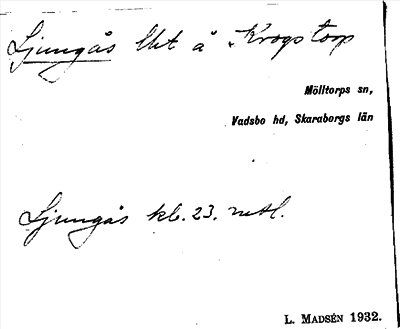 Ljungås lht å Krogstorp
Mölltorps sn,
Vadsbo hd, Skaraborgs län
Ljungås kb. 23. metl.
L. MADSÉN 1932.